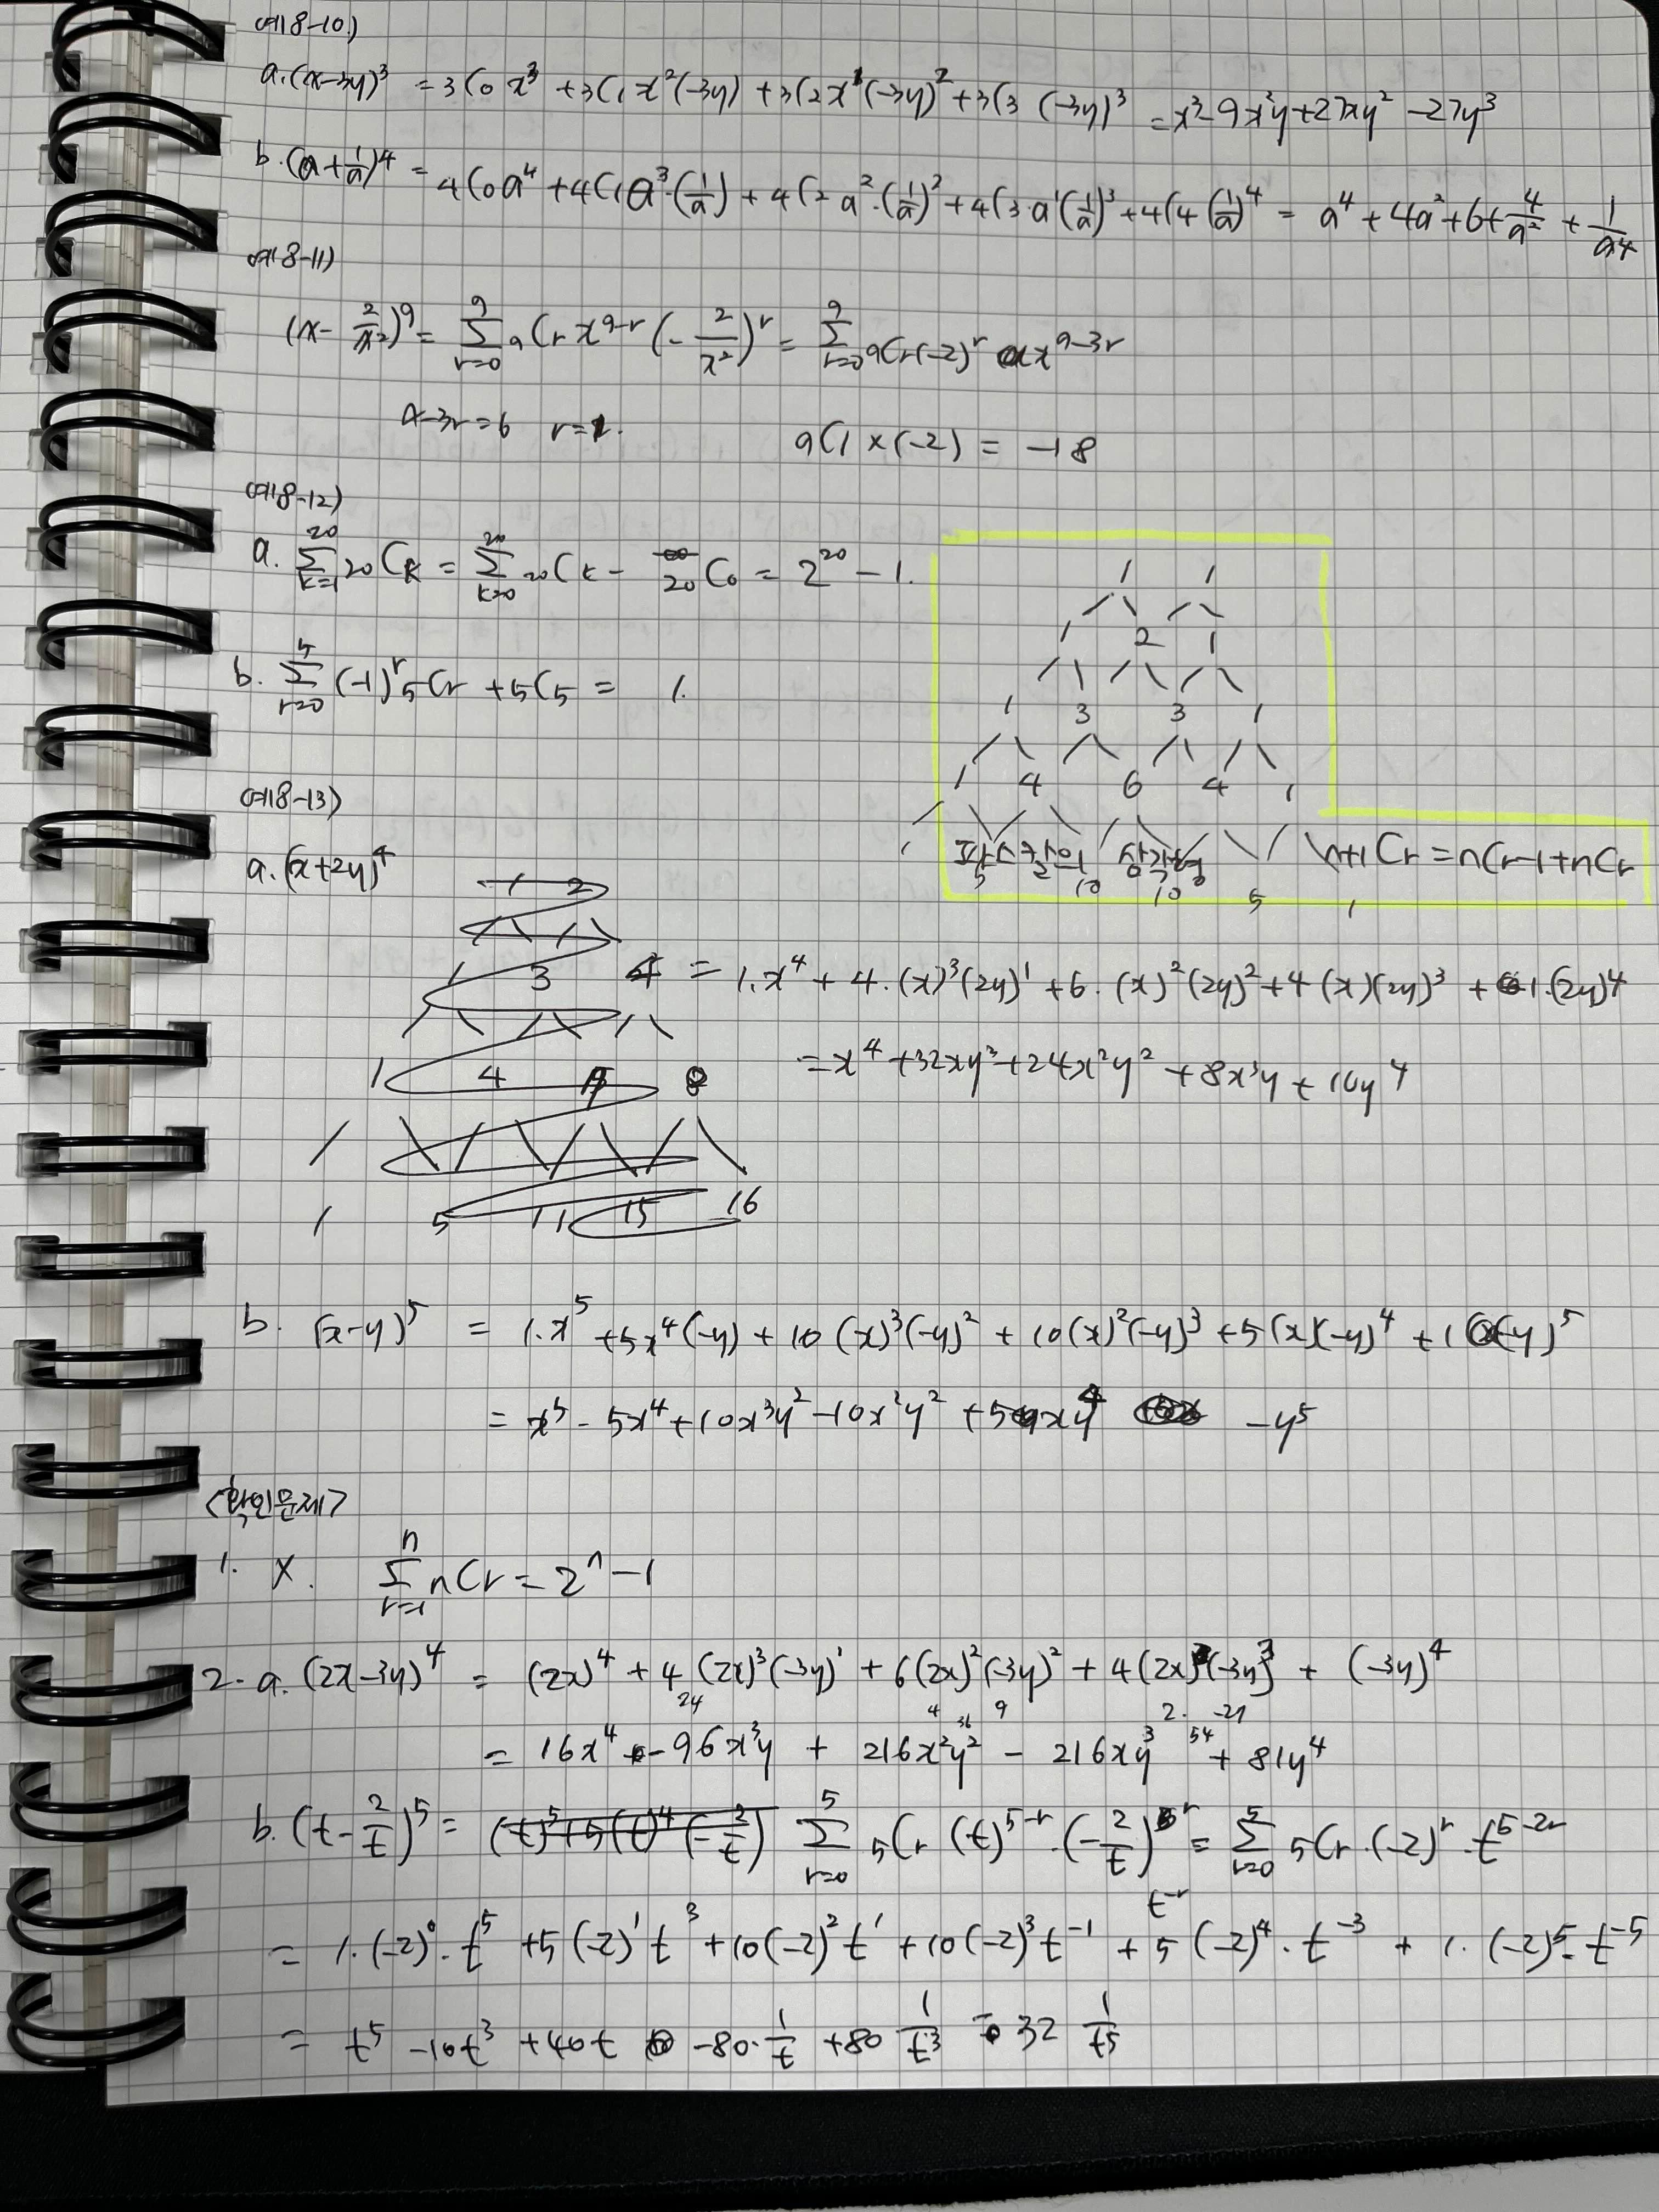 예8-10)
a. (x-3y)³ = 3C0 x³ + 3C1 x²(-3y) + 3C2 x¹(-3y)² + 3C3 (-3y)³ = x³-9x²y+27xy²-27y³
b. (a+1/a)⁴ = 4C0 a⁴ + 4C1 a³·(1/a) + 4C2 a²·(1/a)² + 4C3·a¹(1/a)³ + 4C4 (1/a)⁴ = a⁴ + 4a² + 6 + 4/a² + 1/a⁴
예8-11)
(x - 2/x²)⁹ = Σ r=0 9 9Cr x⁹⁻ʳ (-2/x²)ʳ = Σ r=0 9 9Cr(-2)ʳ x⁹⁻³ʳ
9-3r=6 r=1. 9C1×(-2) = -18
예8-12)
a. Σ k=1 20 20Ck = Σ k=0 20 20Ck - 20C0 = 2²⁰-1.
b. Σ r=0 4 (-1)ʳ 5Cr + 5C5 = 1.
1 1
1 2 1
1 3 3 1
1 4 6 4 1
파스칼의 삼각형 n+1Cr = nCr-1 + nCr
1 5 10 10 5 1
예8-13)
a. (x+2y)⁴
1 2
1 3 4
= 1·x⁴ + 4·(x)³(2y)¹ + 6·(x)²(2y)² + 4(x)(2y)³ + 1·(2y)⁴
1 4 7 8
= x⁴ + 32xy³ + 24x²y² + 8x³y + 16y⁴
1 5 11 15 16
b. (x-y)⁵ = 1·x⁵ + 5x⁴(-y) + 10(x)³(-y)² + 10(x)²(-y)³ + 5(x)(-y)⁴ + 1(-y)⁵
= x⁵ - 5x⁴ + 10x³y² - 10x²y² + 5xy⁴ - y⁵
<확인문제>
1. X. Σ r=1 n nCr = 2ⁿ-1
2. a. (2x-3y)⁴ = (2x)⁴ + 4(2x)³(-3y)¹ + 6(2x)²(-3y)² + 4(2x)(-3y)³ + (-3y)⁴
24 4 36 9 2· -27
= 16x⁴ - 96x³y + 216x²y² - 216xy³ + 81y⁴
54
b. (t-2/t)⁵ = (t)⁵+5(t)⁴(-2/t) Σ r=0 5 5Cr (t)⁵⁻ʳ·(-2/t)ʳ = Σ r=0 5 5Cr·(-2)ʳ·t⁵⁻²ʳ
t⁻ʳ
= 1·(-2)⁰·t⁵ + 5(-2)¹t³ + 10(-2)²t¹ + 10(-2)³t⁻¹ + 5(-2)⁴·t⁻³ + 1·(-2)⁵·t⁻⁵
= t⁵ - 10t³ + 40t - 80·1/t + 80 1/t³ - 32 1/t⁵